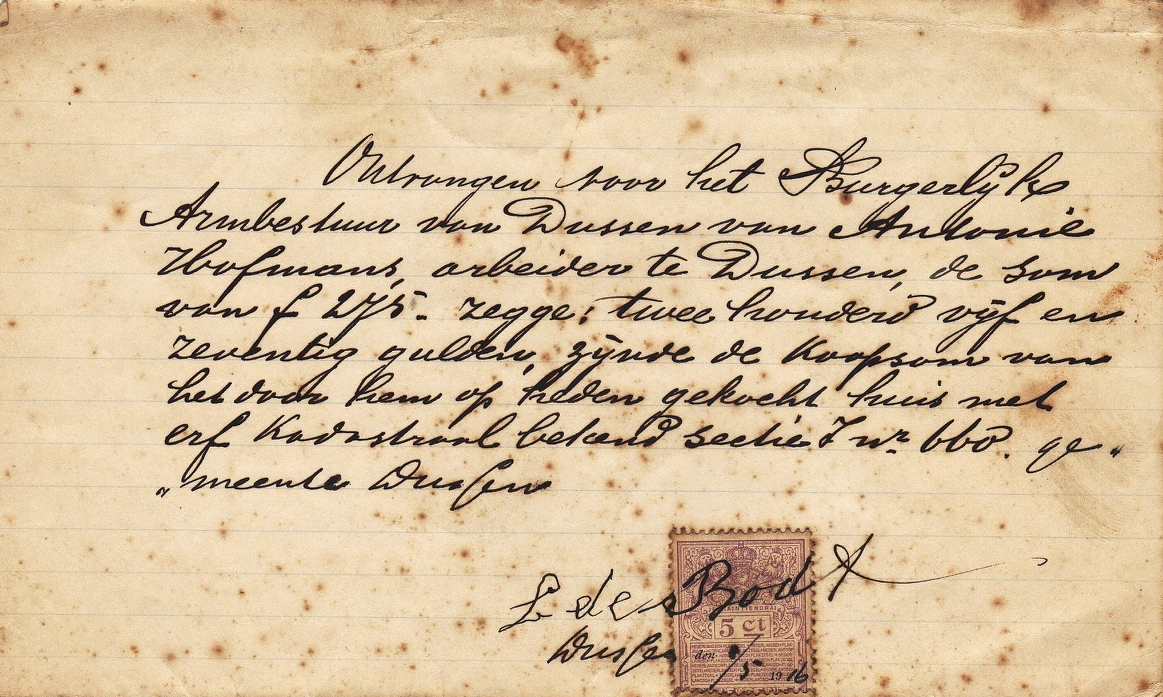 Ontvangen voor het Burgerlijk
Armbestuur van Dussen van Antonie
Hofmans, arbeider te Dussen, de som
van f 275.- zegge: twee honderd vijf en
zeventig gulden, zijnde de Koopsom van
het door hem op heden gekocht huis met
erf Kadastraal bekend sectie nr. ge„
„meente Dussen
L de Bodt
5 ct
Dussen den /5 1916